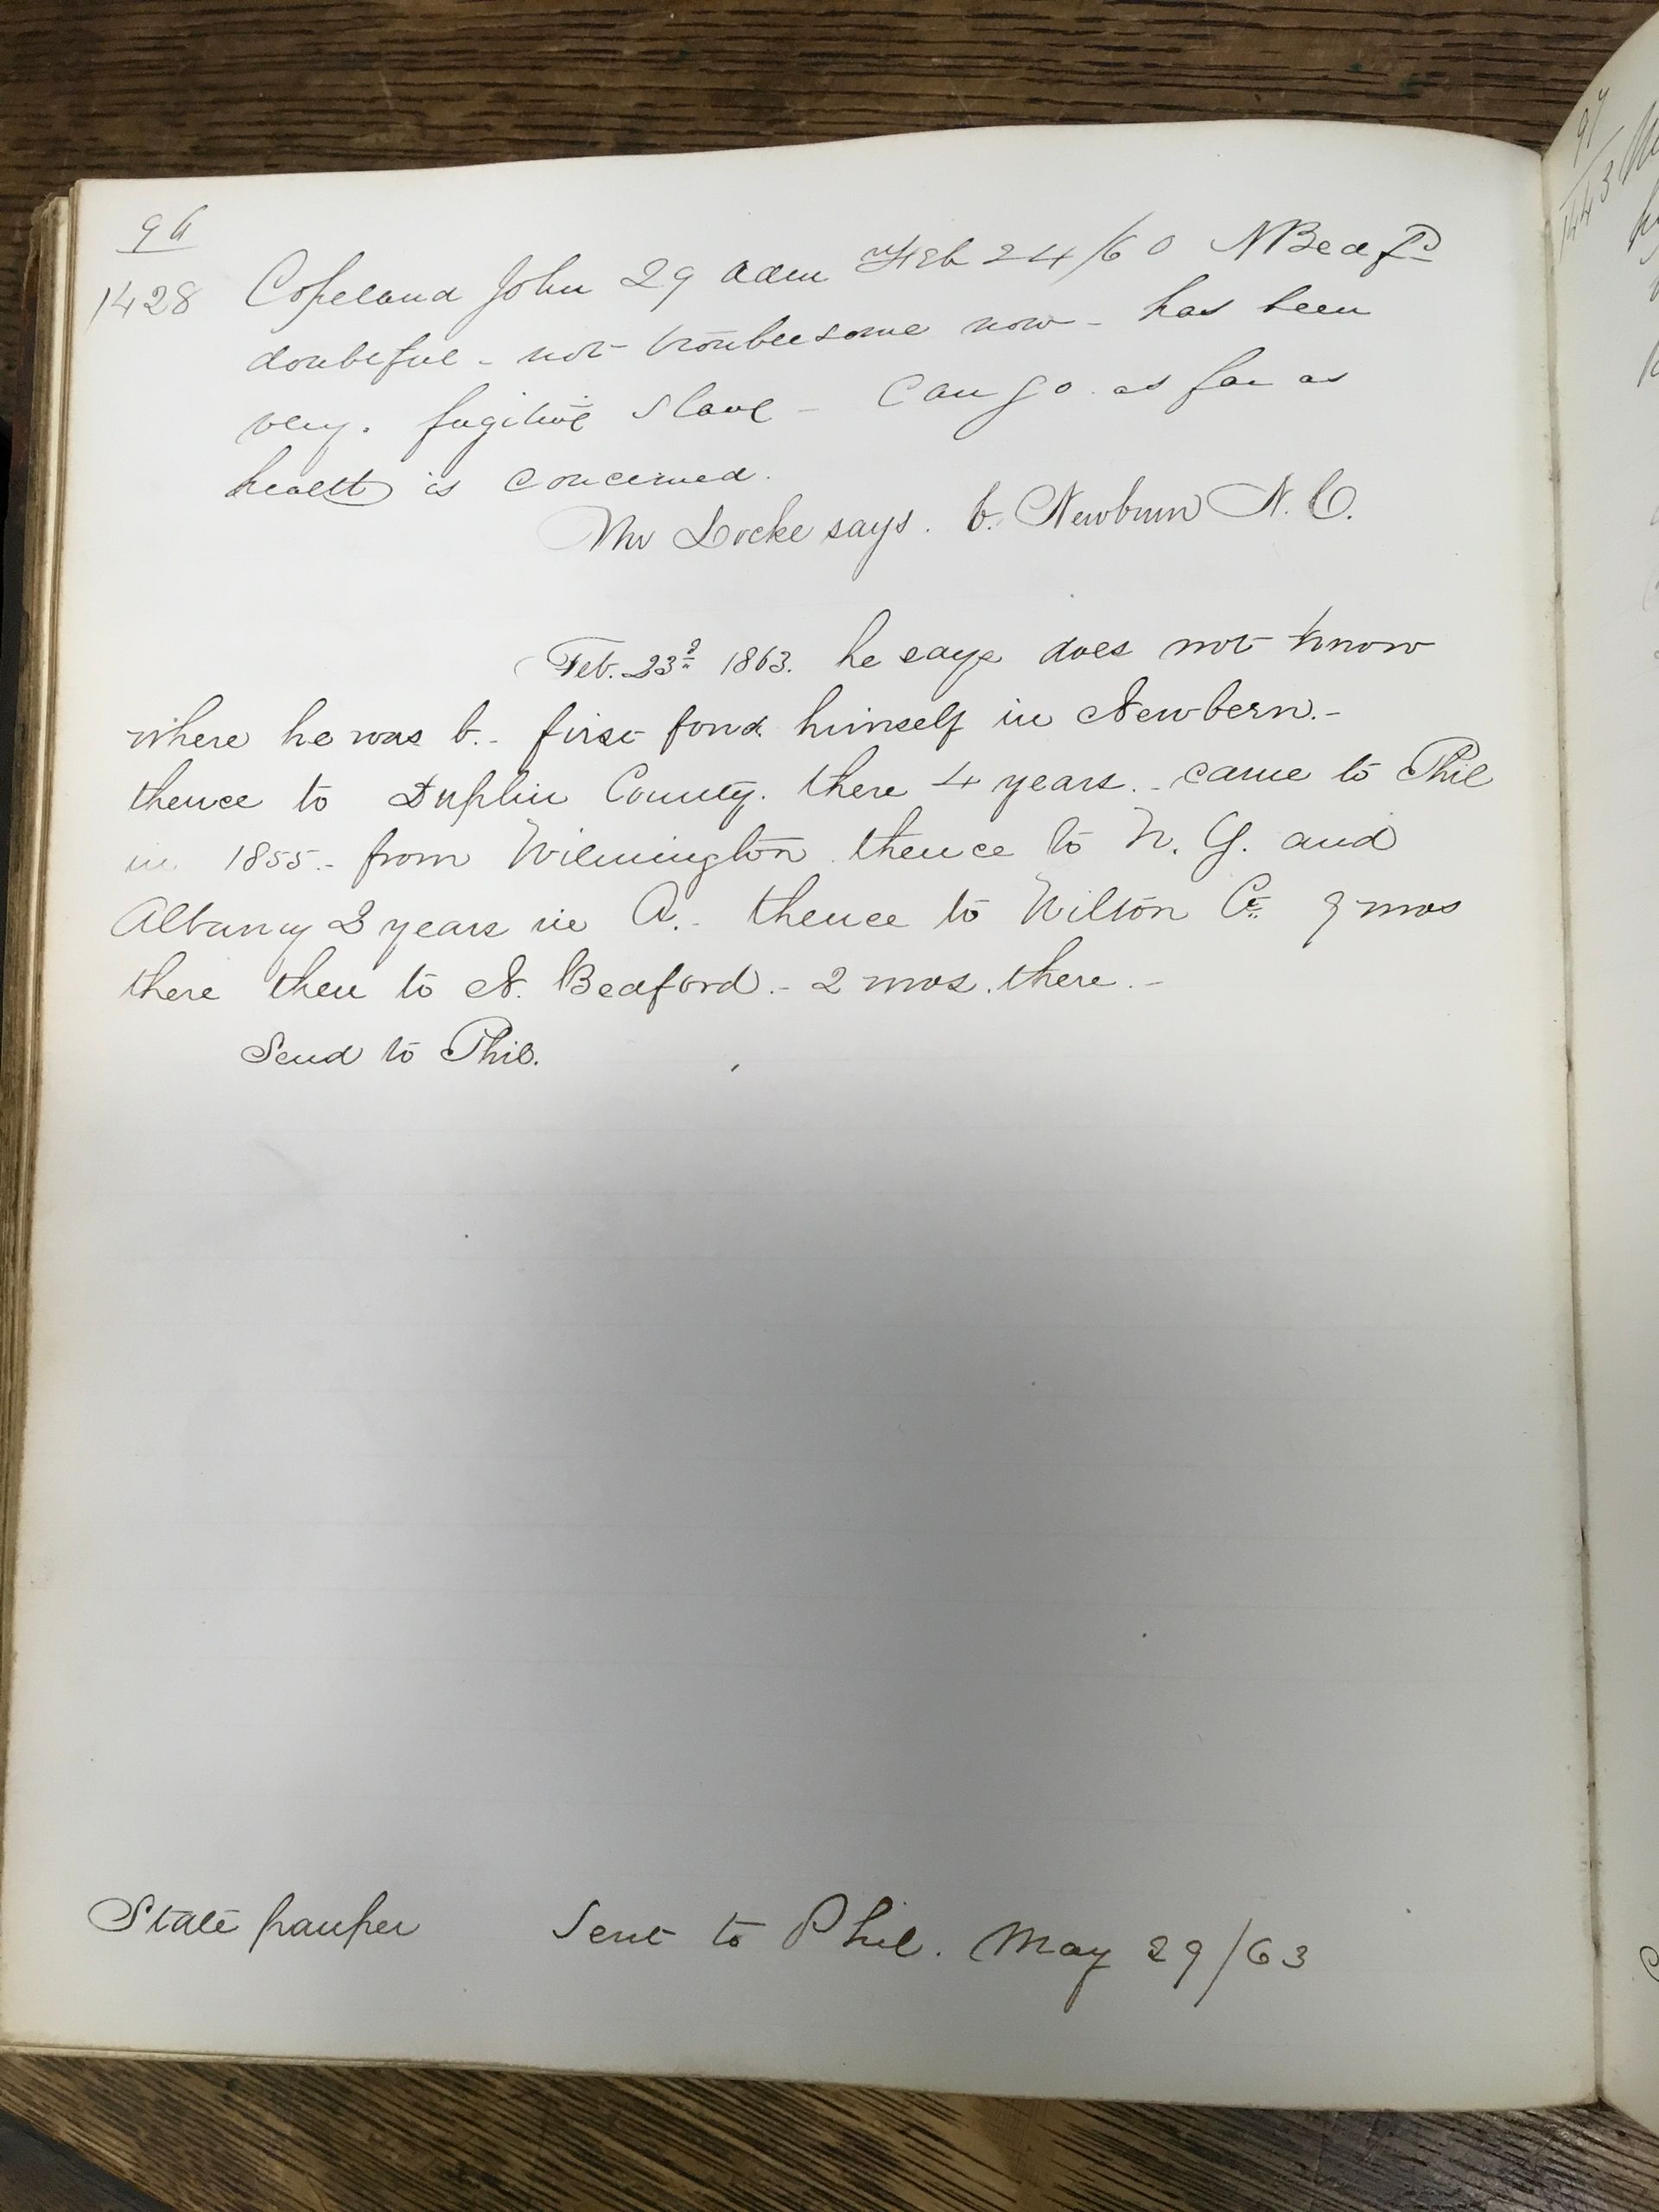 96
1428 Copeland John 29 adm Feb 24/60 N Bedfd
doubtful - not troublesome now - has been
very. fugitive slave - Can go as far as
health is concerned.
Mr Locke says. b. Newburn N. C.
Feb. 23d 1863. he says does not know
where he was b. - first fond himself in Newbern. -
thence to Duplin County. there 4 years. - came to Phil
in 1855. - from Wilmington thence to N. Y. and
Albany 3 years in A. - thence to Wilton Ct. 9 mos
there then to N. Bedford. - 2 mos. there. -
Send to Phil.
State pauper Sent to Phil. May 29/63
97
1443